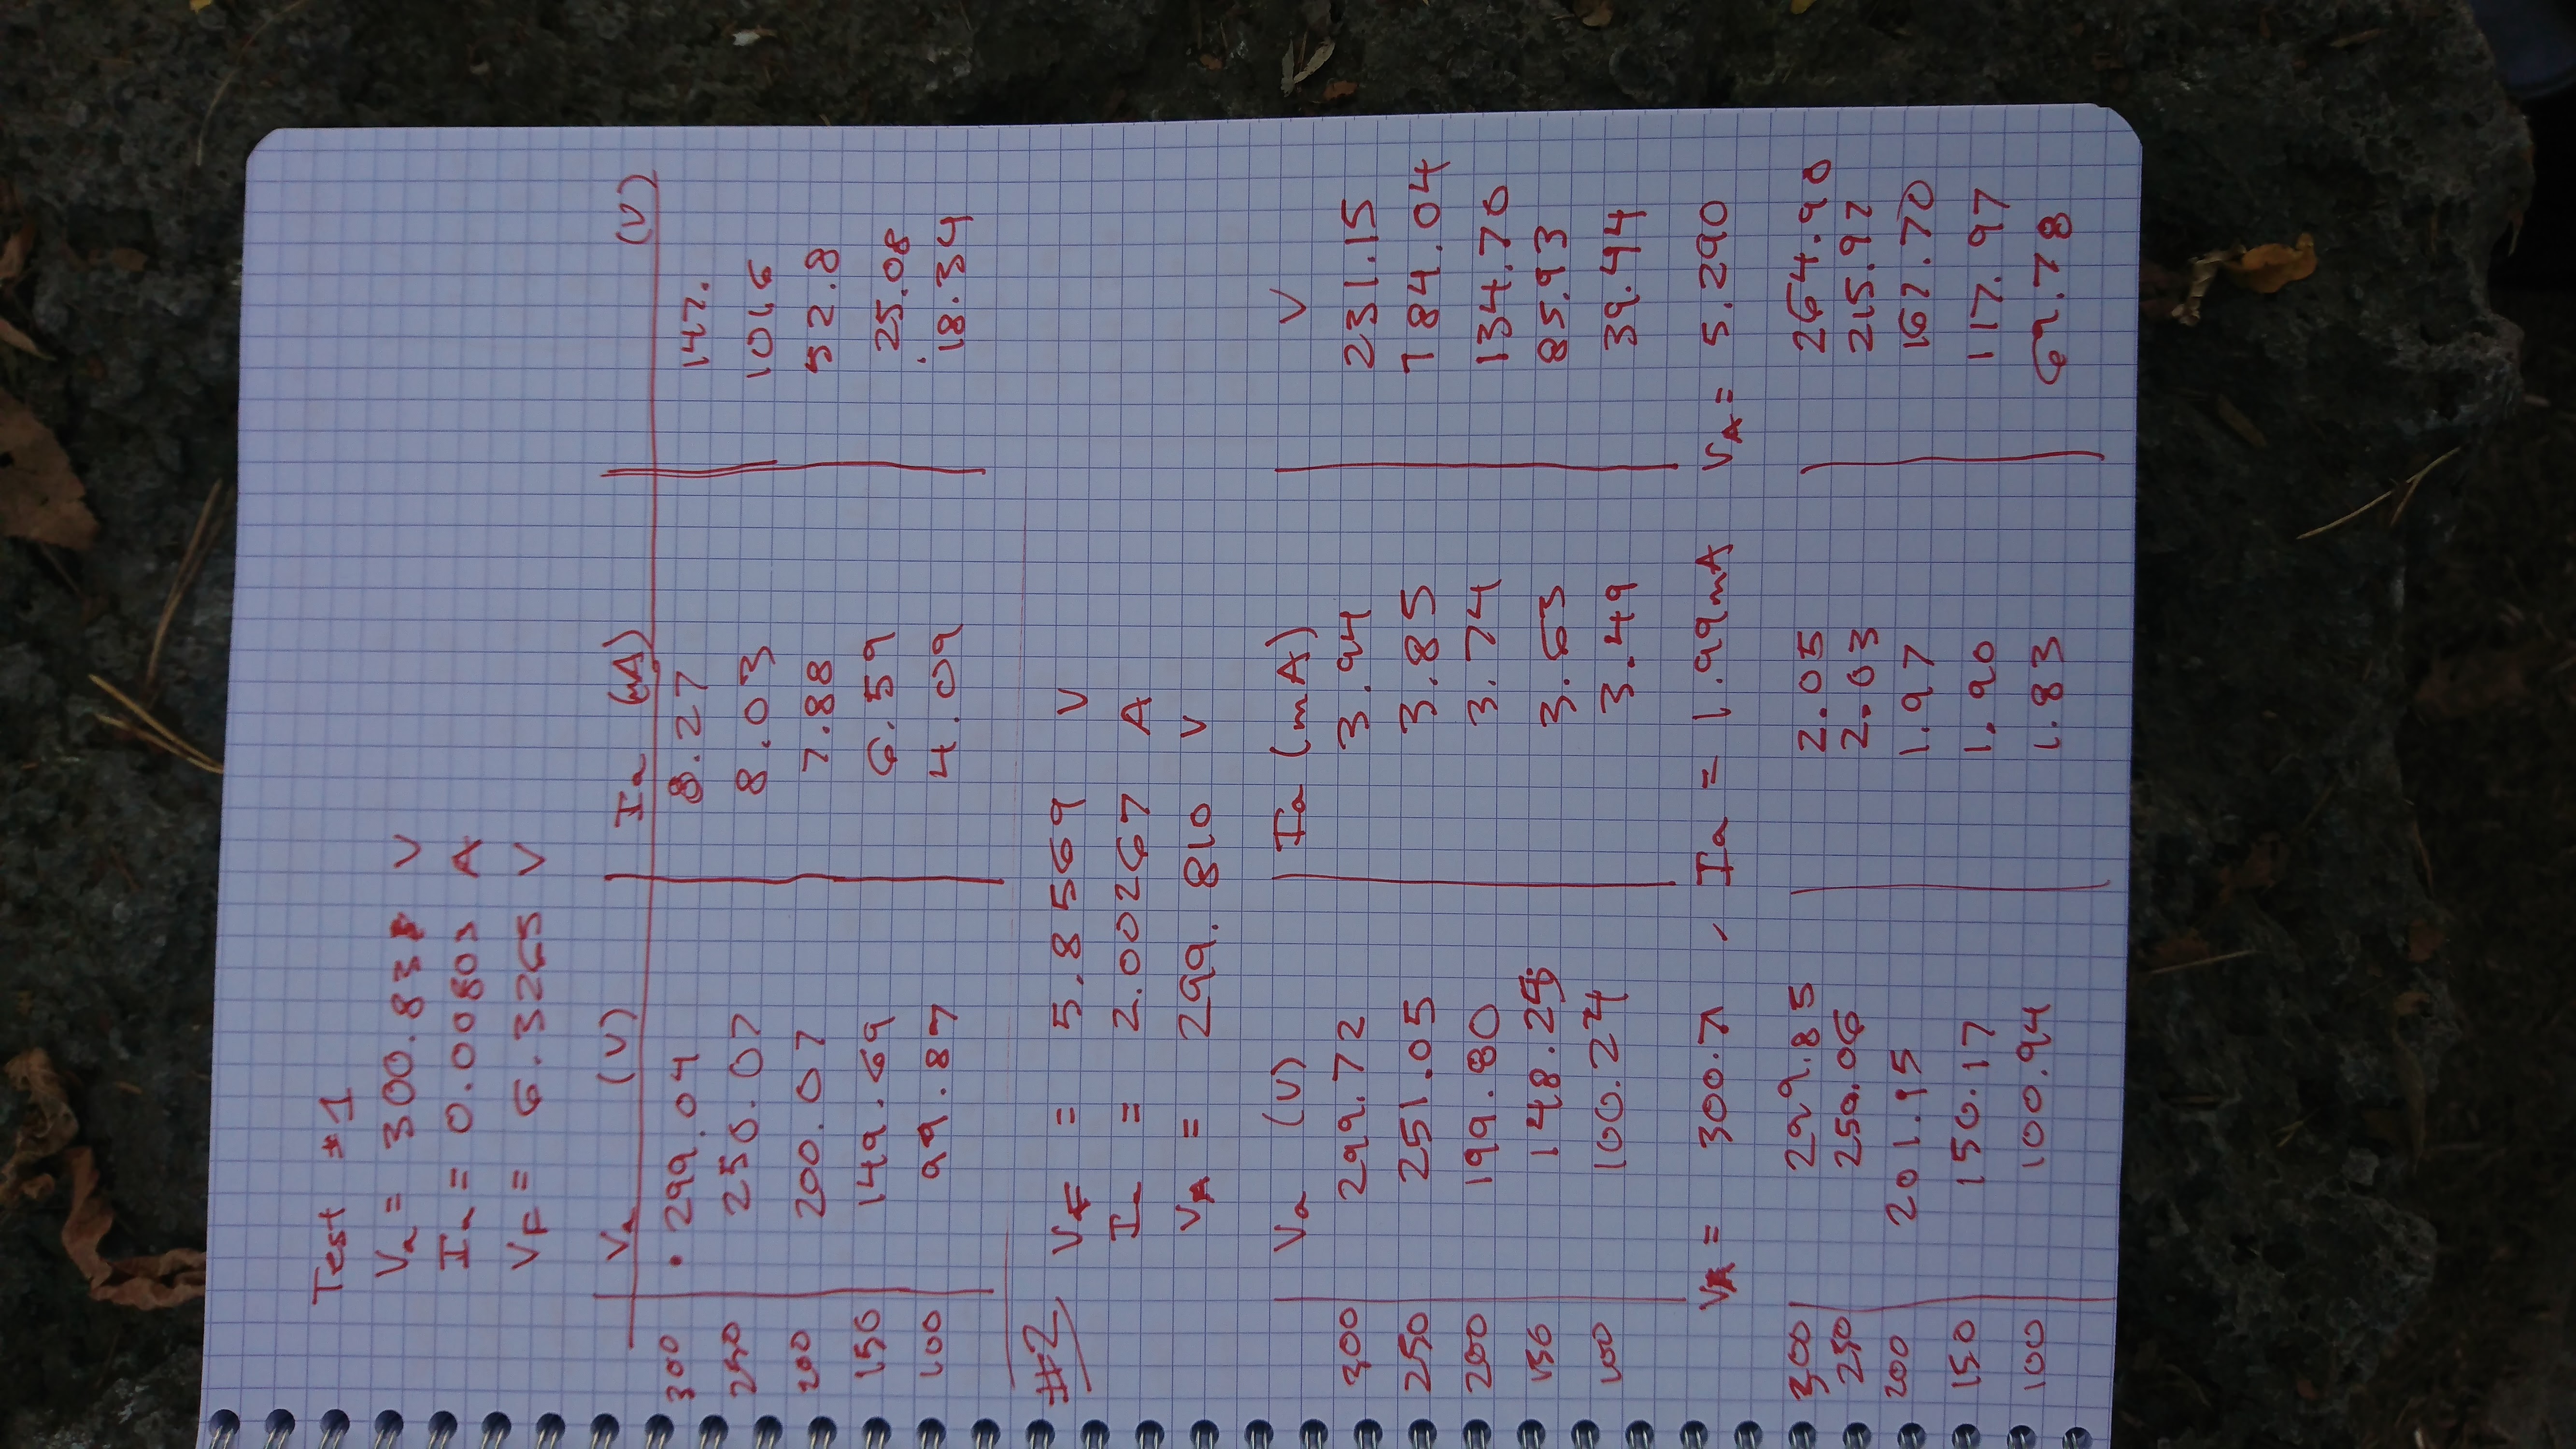 Test #1
Va = 300.83 V
Ia = 0.00803 A
VF = 6.3265 V
Va (V) Ia (mA) (V)
300 299.04 8.27 147.
250 250.07 8.03 101.6
200 200.07 7.88 52.8
150 149.69 6.59 25.08
100 99.87 4.09 18.34
#2 VF = 5.8569 V
Ia = 2.00267 A
VA = 299.810 V
Va (V) Ia (mA) V
300 299.72 3.94 231.15
250 251.05 3.85 184.04
200 199.80 3.74 134.70
150 148.25 3.63 85.93
100 100.24 3.49 39.44
VA = 300.7 , Ia = 1.99mA VA = 5.290
300 299.85 2.05 264.90
250 250.06 2.03 215.92
200 201.15 1.97 167.70
150 150.17 1.90 117.97
100 100.94 1.83 69.78